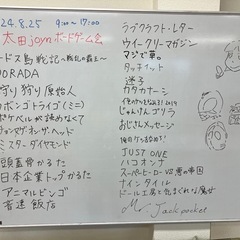 24.8.25 9:30〜17:00
太田joynボードゲーム会
ードス島戦記〜戦乱の覇王〜
DORADA
狩り狩り原始人
カボンゴトライゴ(ミニ)
ポケベルが読めなくて
ョンマゲ・オン・ザ・ヘッド
ミスター・ダイヤモンド
頭蓋骨かるた
日本企業トップかるた
アニマルビンゴ
音速飯店
ラブクラフト・レター
ウイークリーマガジン
マジで草。
タッチイット
迷子
カタカナーシ
じゃんけんゴリラ
おじさんメッセージ
JUST ONE
ハコオンナ
スーパーヒーローVS悪の帝国
ナインタイル
ドール工房と気まぐれな魔女
Mr Jack pocket